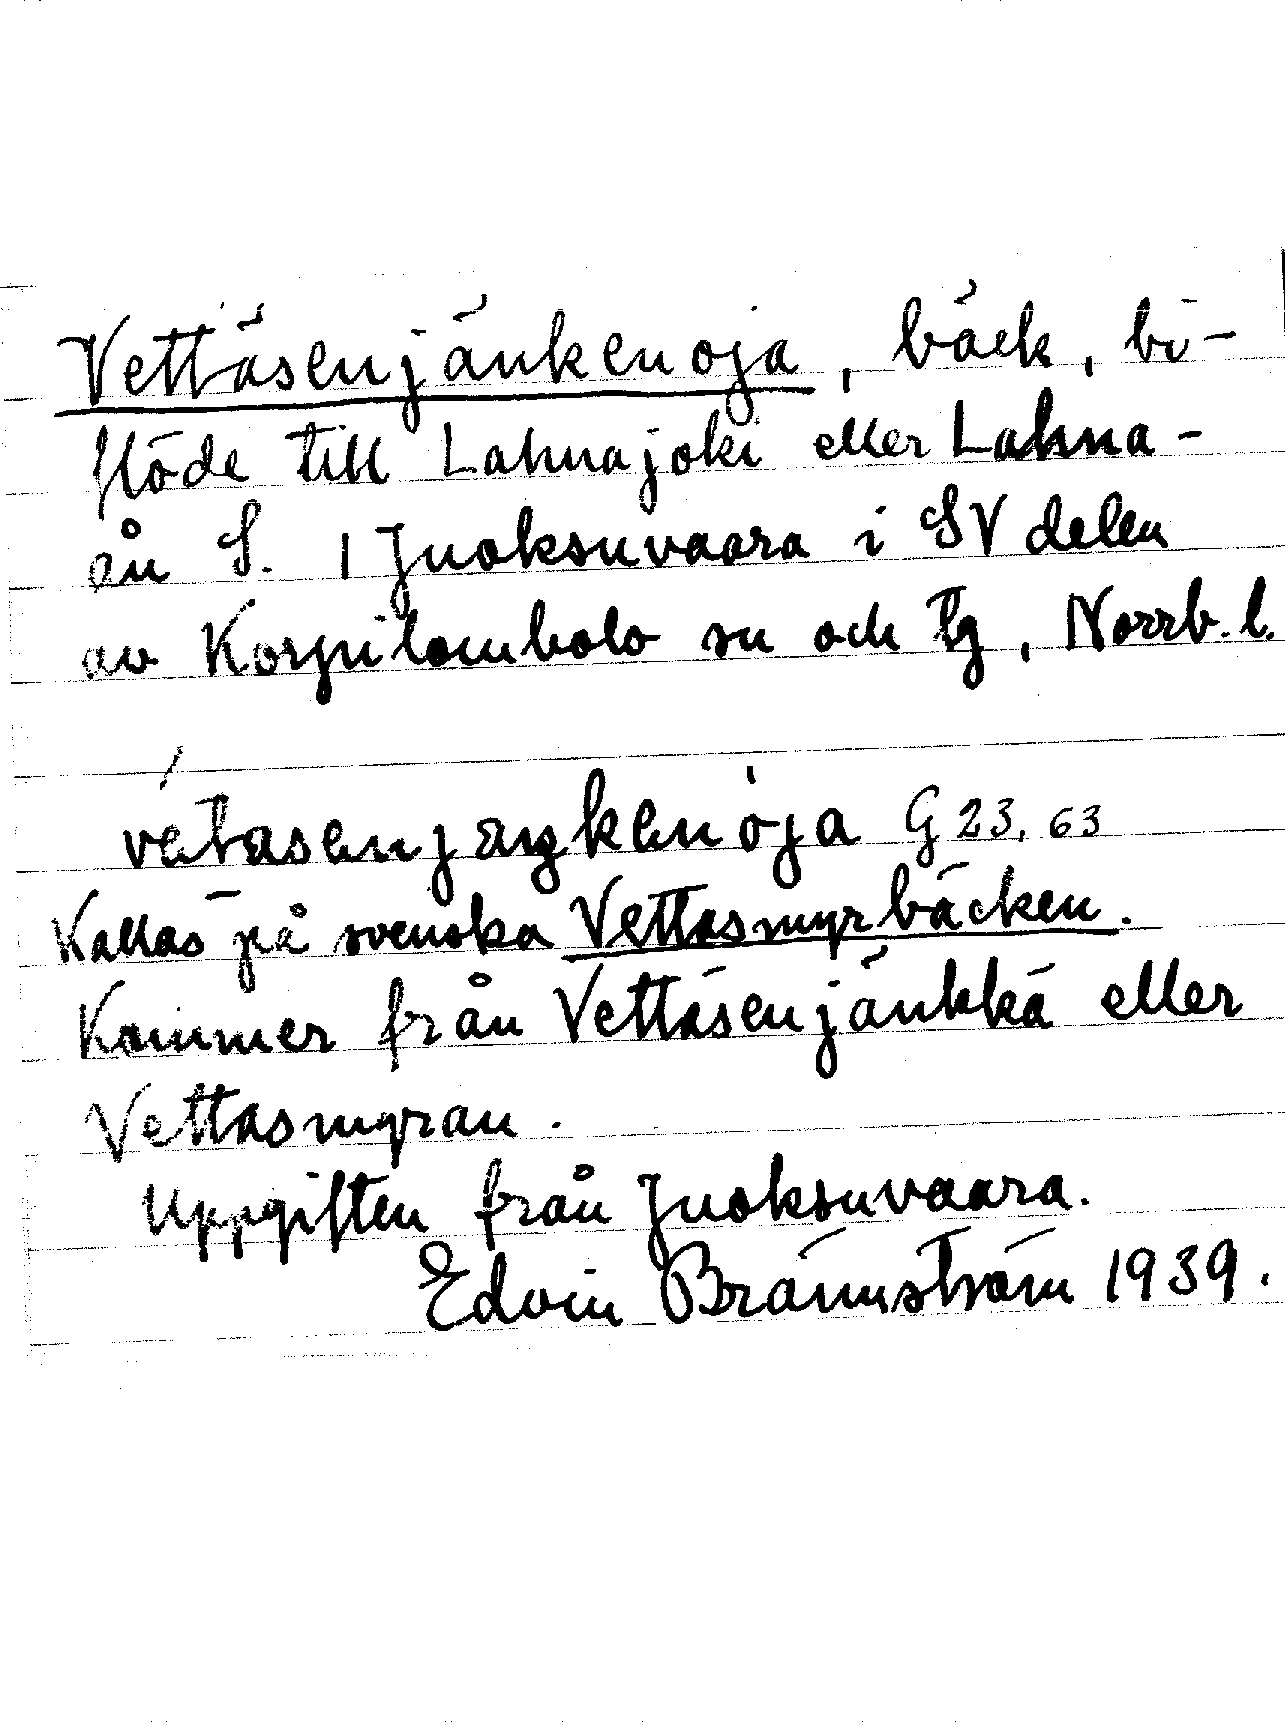 Vettäsenjänkenoja, bäck, bi-
flöde till Lahnajoki eller Lahna-
ån S. I Juoksuvaara i SV delen
av Korpilombolo sn och tg, Norrb. l.
vetasenjaŋkenoja G 23, 63
Kallas på svenska Vettasmyrbäcken.
Kommer från Vettäsenjänkkä eller
Vettasmyran.
Uppgiften från Juoksuvaara.
Edvin Brännström 1939.